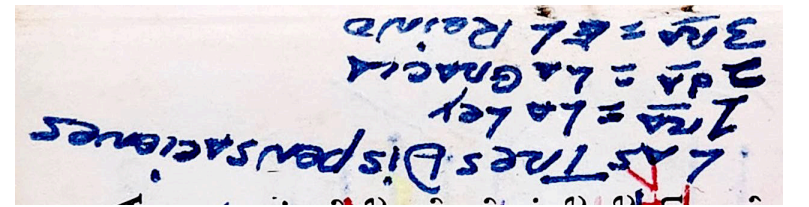 LAS TRES DispENSACiONES
1RA = LA LEY
2dA = LA GRACIA
3RA = EL REiNO